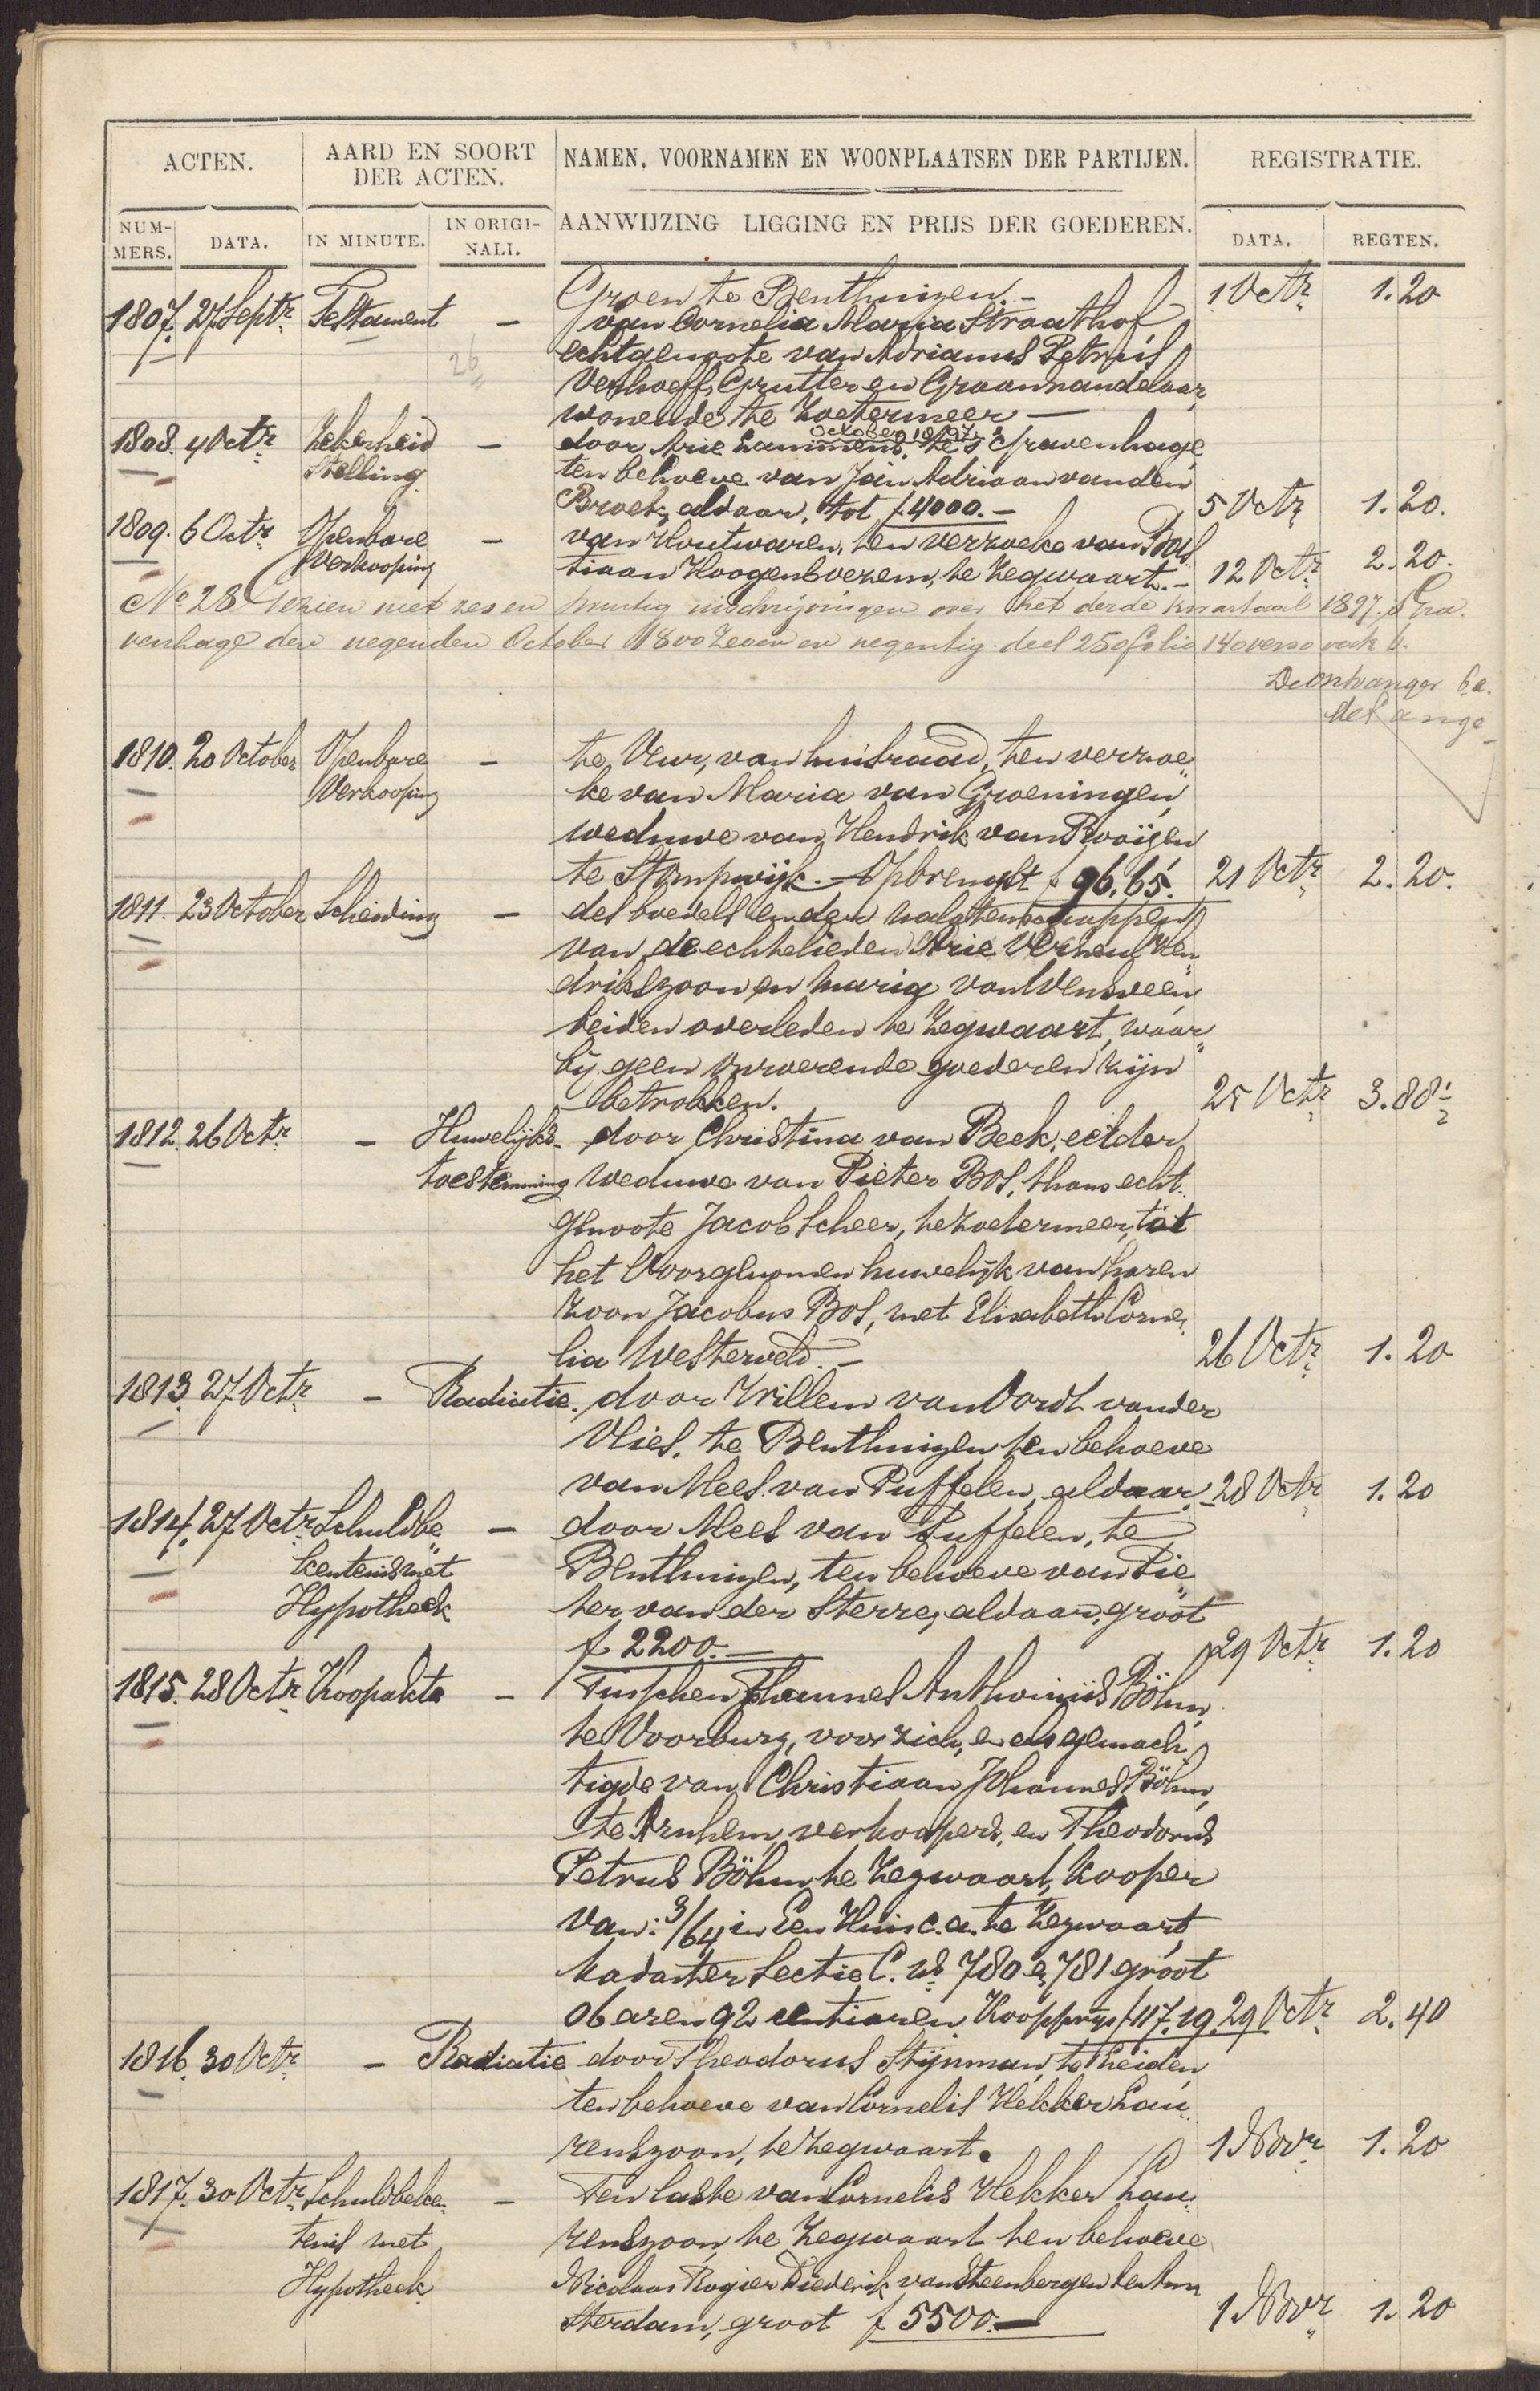 ACTEN.
AARD EN SOORT
DER ACTEN.
NAMEN, VOORNAMEN EN WOONPLAATSEN DER PARTIJEN.
REGISTRATIE.
NUM-
MERS.
DATA.
IN MINUTE.
IN ORIGI-
NALI.
AANWIJZING LIGGING EN PRIJS DER GOEDEREN.
DATA.
REGTEN.
Groen te Benthuizen.- 1 Octr 1.20
1807. 27 Septr Testament - van Cornelia Maria Straathof
26 echtgenoote van Adrianus Petrus
Verhoeff, Grutter en Graanhandelaar,
wonende te Zoetermeer -
October 1897
1808. 4 Octr Zekerheid - door Arie Lammens, te 's Gravenhage,
Stelling ten behoeve van Jan Adriaan van den
Broek, aldaar, tot f 4000.- 5 Octr 1.20.
1809. 6 Octr Openbare - van Houtwaren, ten verzoeke van Bas
Verkooping tiaan Hoogenboezem, te Zegwaart.- 12 Octr 2.20.
No 28 Gezien met zes en twintig inschrijvingen over het derde kwartaal 1897. 's Gra-
venhage den negenden October 1800 zeven en negentig deel 250 folio 140 verso vak 6.
De Ontvanger
de Lange
1810. 20 October Openbare - te Veur, van huisraad, ten verzoe
Verkooping ke van Maria van Groeningen,
weduwe van Hendrik van Rooijen
te Stompwijk.- Opbrengst f 96.65. 21 Octr 2.20.
1811. 23 October Scheiding - des boedels en der nalatenschappen
van de echtelieden Arie Verheul Hen
drikszoon en Maria van Wensveen,
beiden overleden te Zegwaart, waar
bij geen onroerende goederen zijn
betrokken. 25 Octr 3.88½
1812. 26 Octr - Huwelijks- door Christina van Beek, eerder
toestemming weduwe van Pieter Bos, thans echt-
genoote Jacob Scheer, te Zoetermeer, tot
het voorgenomen huwelijk van haren
zoon Jacobus Bos, met Elisabeth Corne
lia Westerveld.- 26 Octr 1.20
1813. 27 Octr - Radiatie. door Willem van Oordt van der
Vlies, te Benthuizen ten behoeve
van Mees van Puffelen, aldaar.- 28 Octr 1.20
1814. 27 Octr Schuldbe - door Mees van Puffelen, te
kentenis met Benthuizen, ten behoeve van Pie
Hypotheek ter van der Sterre, aldaar, groot
f 2200.- 29 Octr 1.20
1815. 28 Octr Koopakte - Tusschen Johannes Anthonius Böhm,
te Voorburg, voor zich, en als gemach
tigde van Christiaan Johannes Böhm,
te Arnhem, verkoopers, en Theodorus
Petrus Böhm te Zegwaart, kooper
van: 3/64 in Een Huis c.a. te Zegwaart,
kadaster Sectie C. nos 780 en 781 groot
06 aren 92 centiaren. Koopprijs f 117.19. 29 Octr 2.40
1816. 30 Octr - Radiatie door Theodorus Stijnman, te Leiden,
ten behoeve van Cornelis Hekker Lau
renszoon, te Zegwaart. 1 Novr 1.20
1817. 30 Octr Schuldbeken - Ten laste van Cornelis Hekker Lau
tenis met renszoon, te Zegwaart ten behoeve
Hypotheek Nicolaas Rogier Diederik van Steenbergen te Am
sterdam, groot f 5500.- 1 Novr 1.20